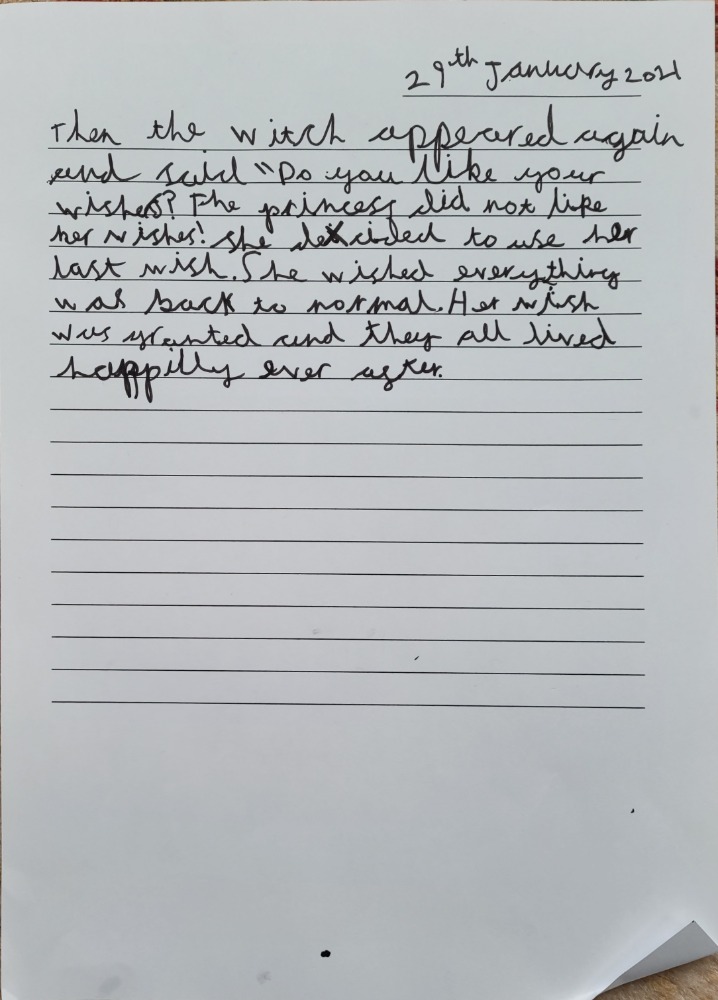 29th January 2021
Then the witch appeared again
and said "Do you like your
wishes? The princess did not like
her wishes! She decided to use her
last wish. She wished everything
was back to normal. Her wish
was granted and they all lived
happilly ever after.